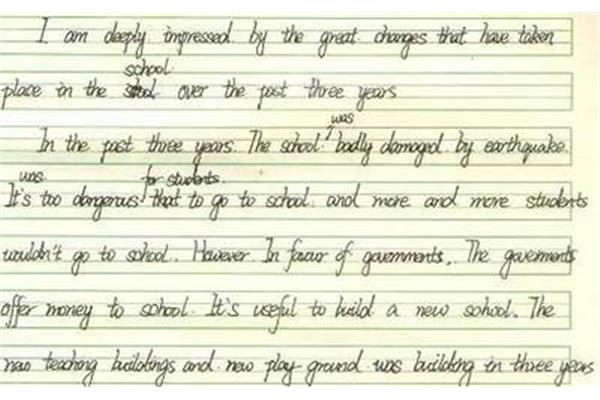 I am deeply impressed by the great changes that have taken
school
place in the school over the past three years
was
In the past three years. The school badly damaged by earthquake.
was for students.
It's too dangerous that to go to school. and more and more students
wouldn't go to school. However In favour of governments. The goverments
offer money to school. It's useful to build a new school. The
new teaching buildings and new play ground was building in three years